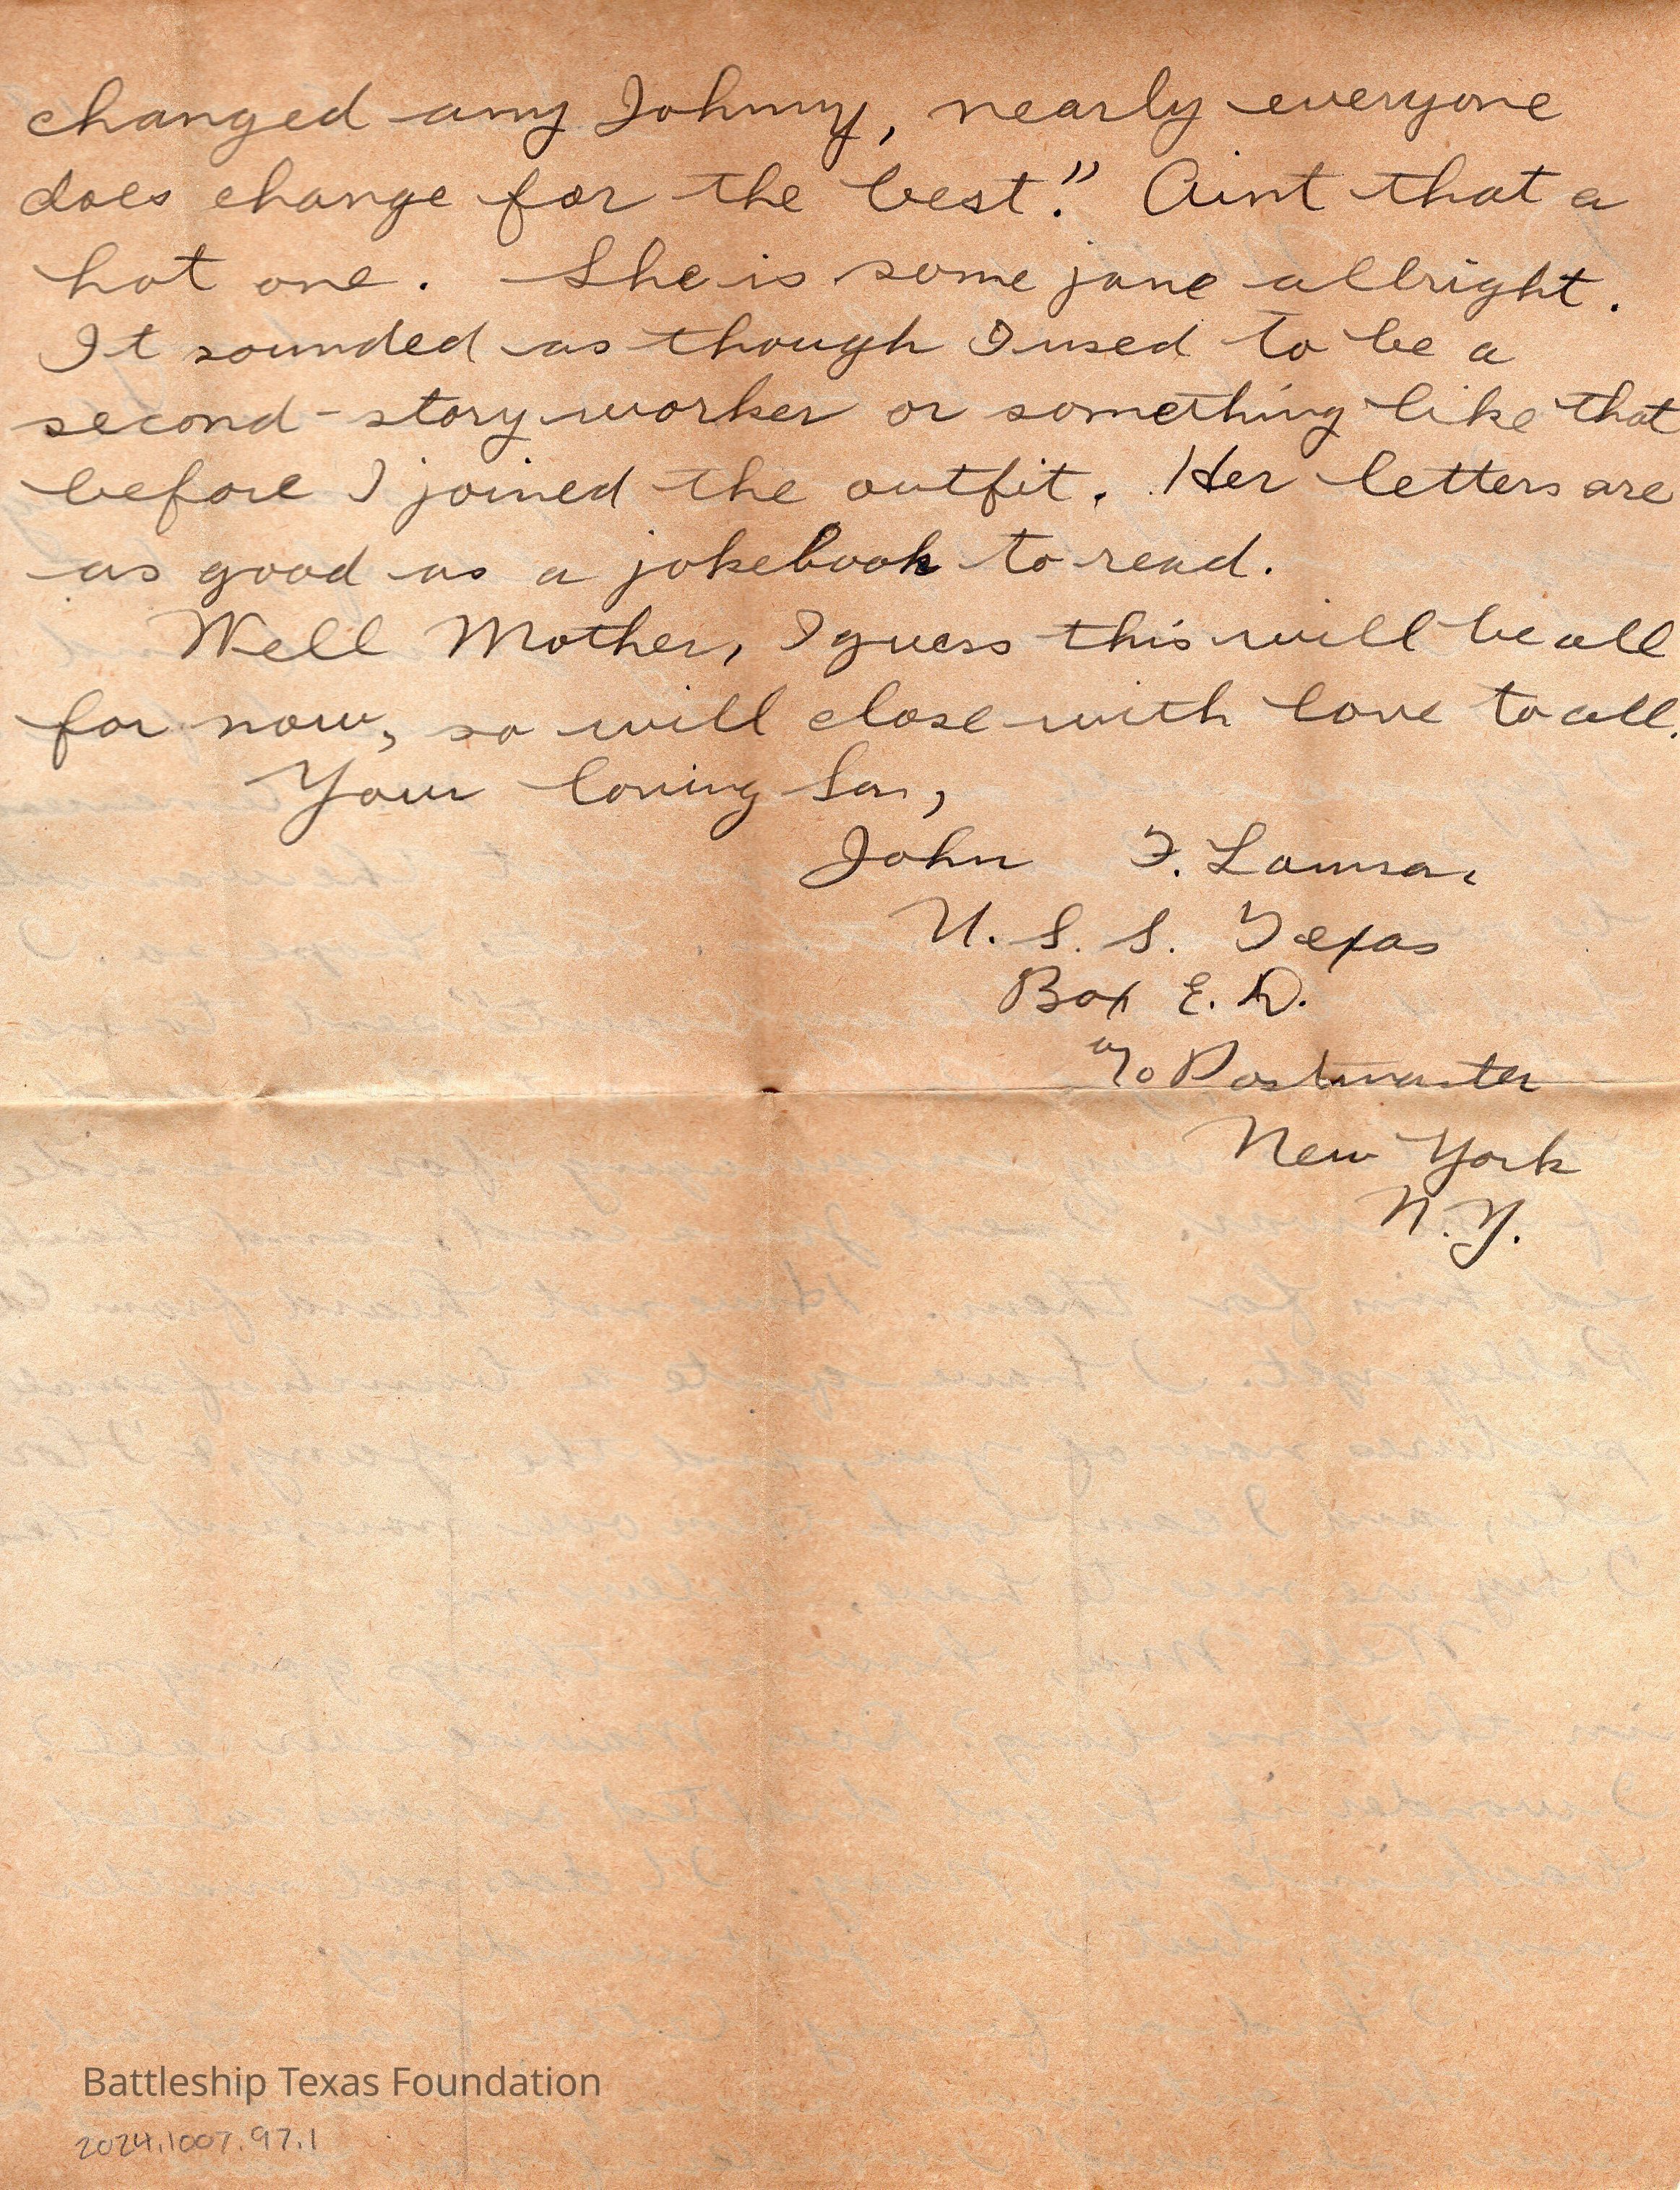 changed any Johnny, nearly everyone
does change for the best." Aint that a
hot one. She is some jane allright.
It sounded as though I used to be a
second-story worker or something like that
before I joined the outfit. Her letters are
as good as a jokebook to read.
Well Mother, I guess this will be all
for now, so will close with love to all.
Your loving Son,
John F.
U. S. S. Texas
Box E. D.
c/o Postmaster
New York
N.Y.
Battleship Texas Foundation
2024.1007.97.1